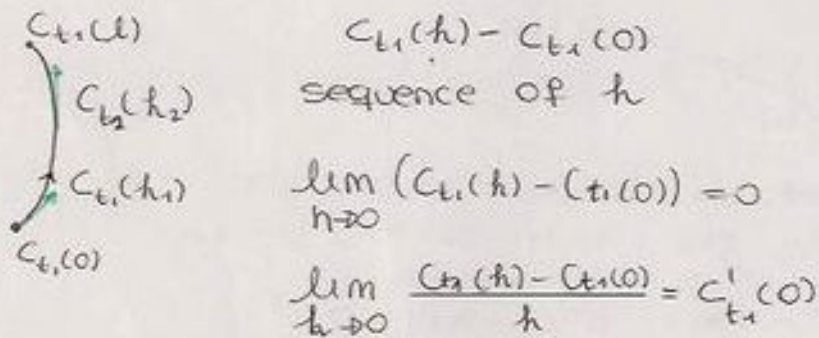 C_{t_1}(l)
C_{t_2}(h_2)
C_{t_1}(h_1)
C_{t_1}(0)
C_{t_1}(h) - C_{t_1}(0)
sequence of h
lim_{h→0} (C_{t_1}(h) - C_{t_1}(0)) = 0
lim_{h→0} \frac{C_{t_1}(h) - C_{t_1}(0)}{h} = C'_{t_1}(0)